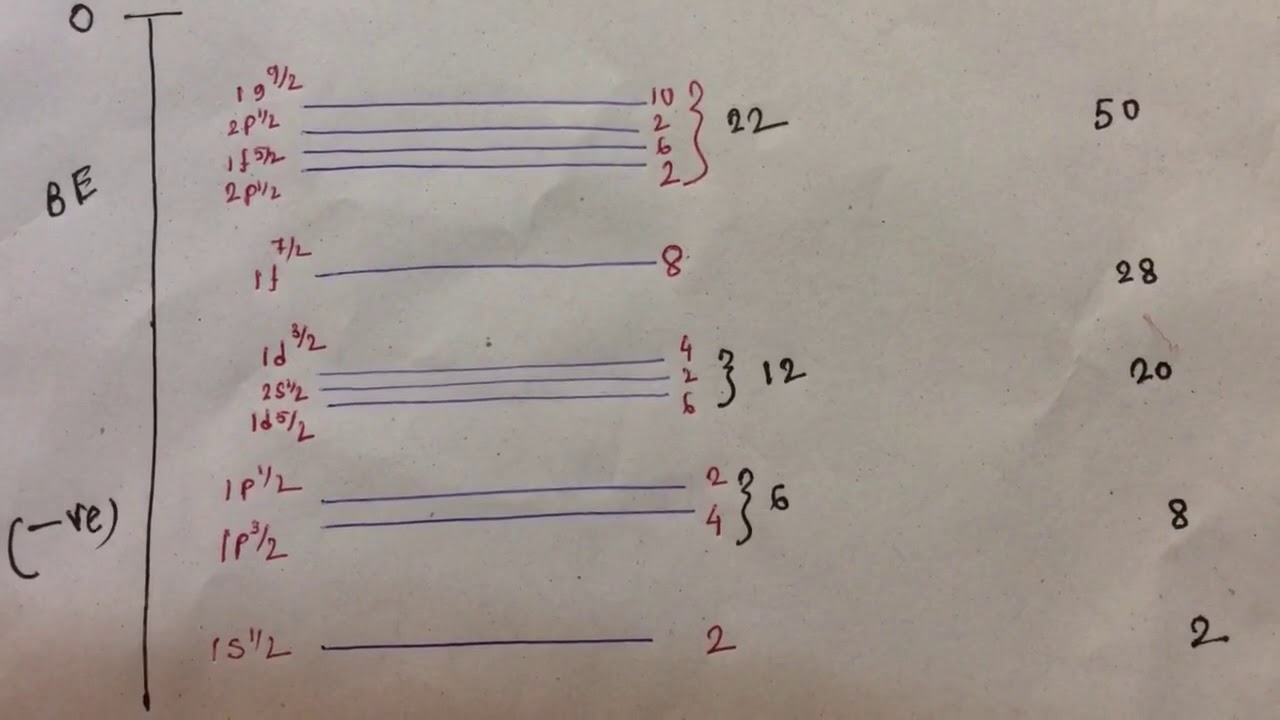 0
1g 9/2 10
2p 1/2 2
1f 5/2 6
2p 1/2 2
} 22 50
BE
1f 7/2 8 28
1d 3/2 4
2s 1/2 2
1d 5/2 6
} 12 20
1p 1/2 2
1p 3/2 4
} 6 8
(-ve)
1s 1/2 2 2